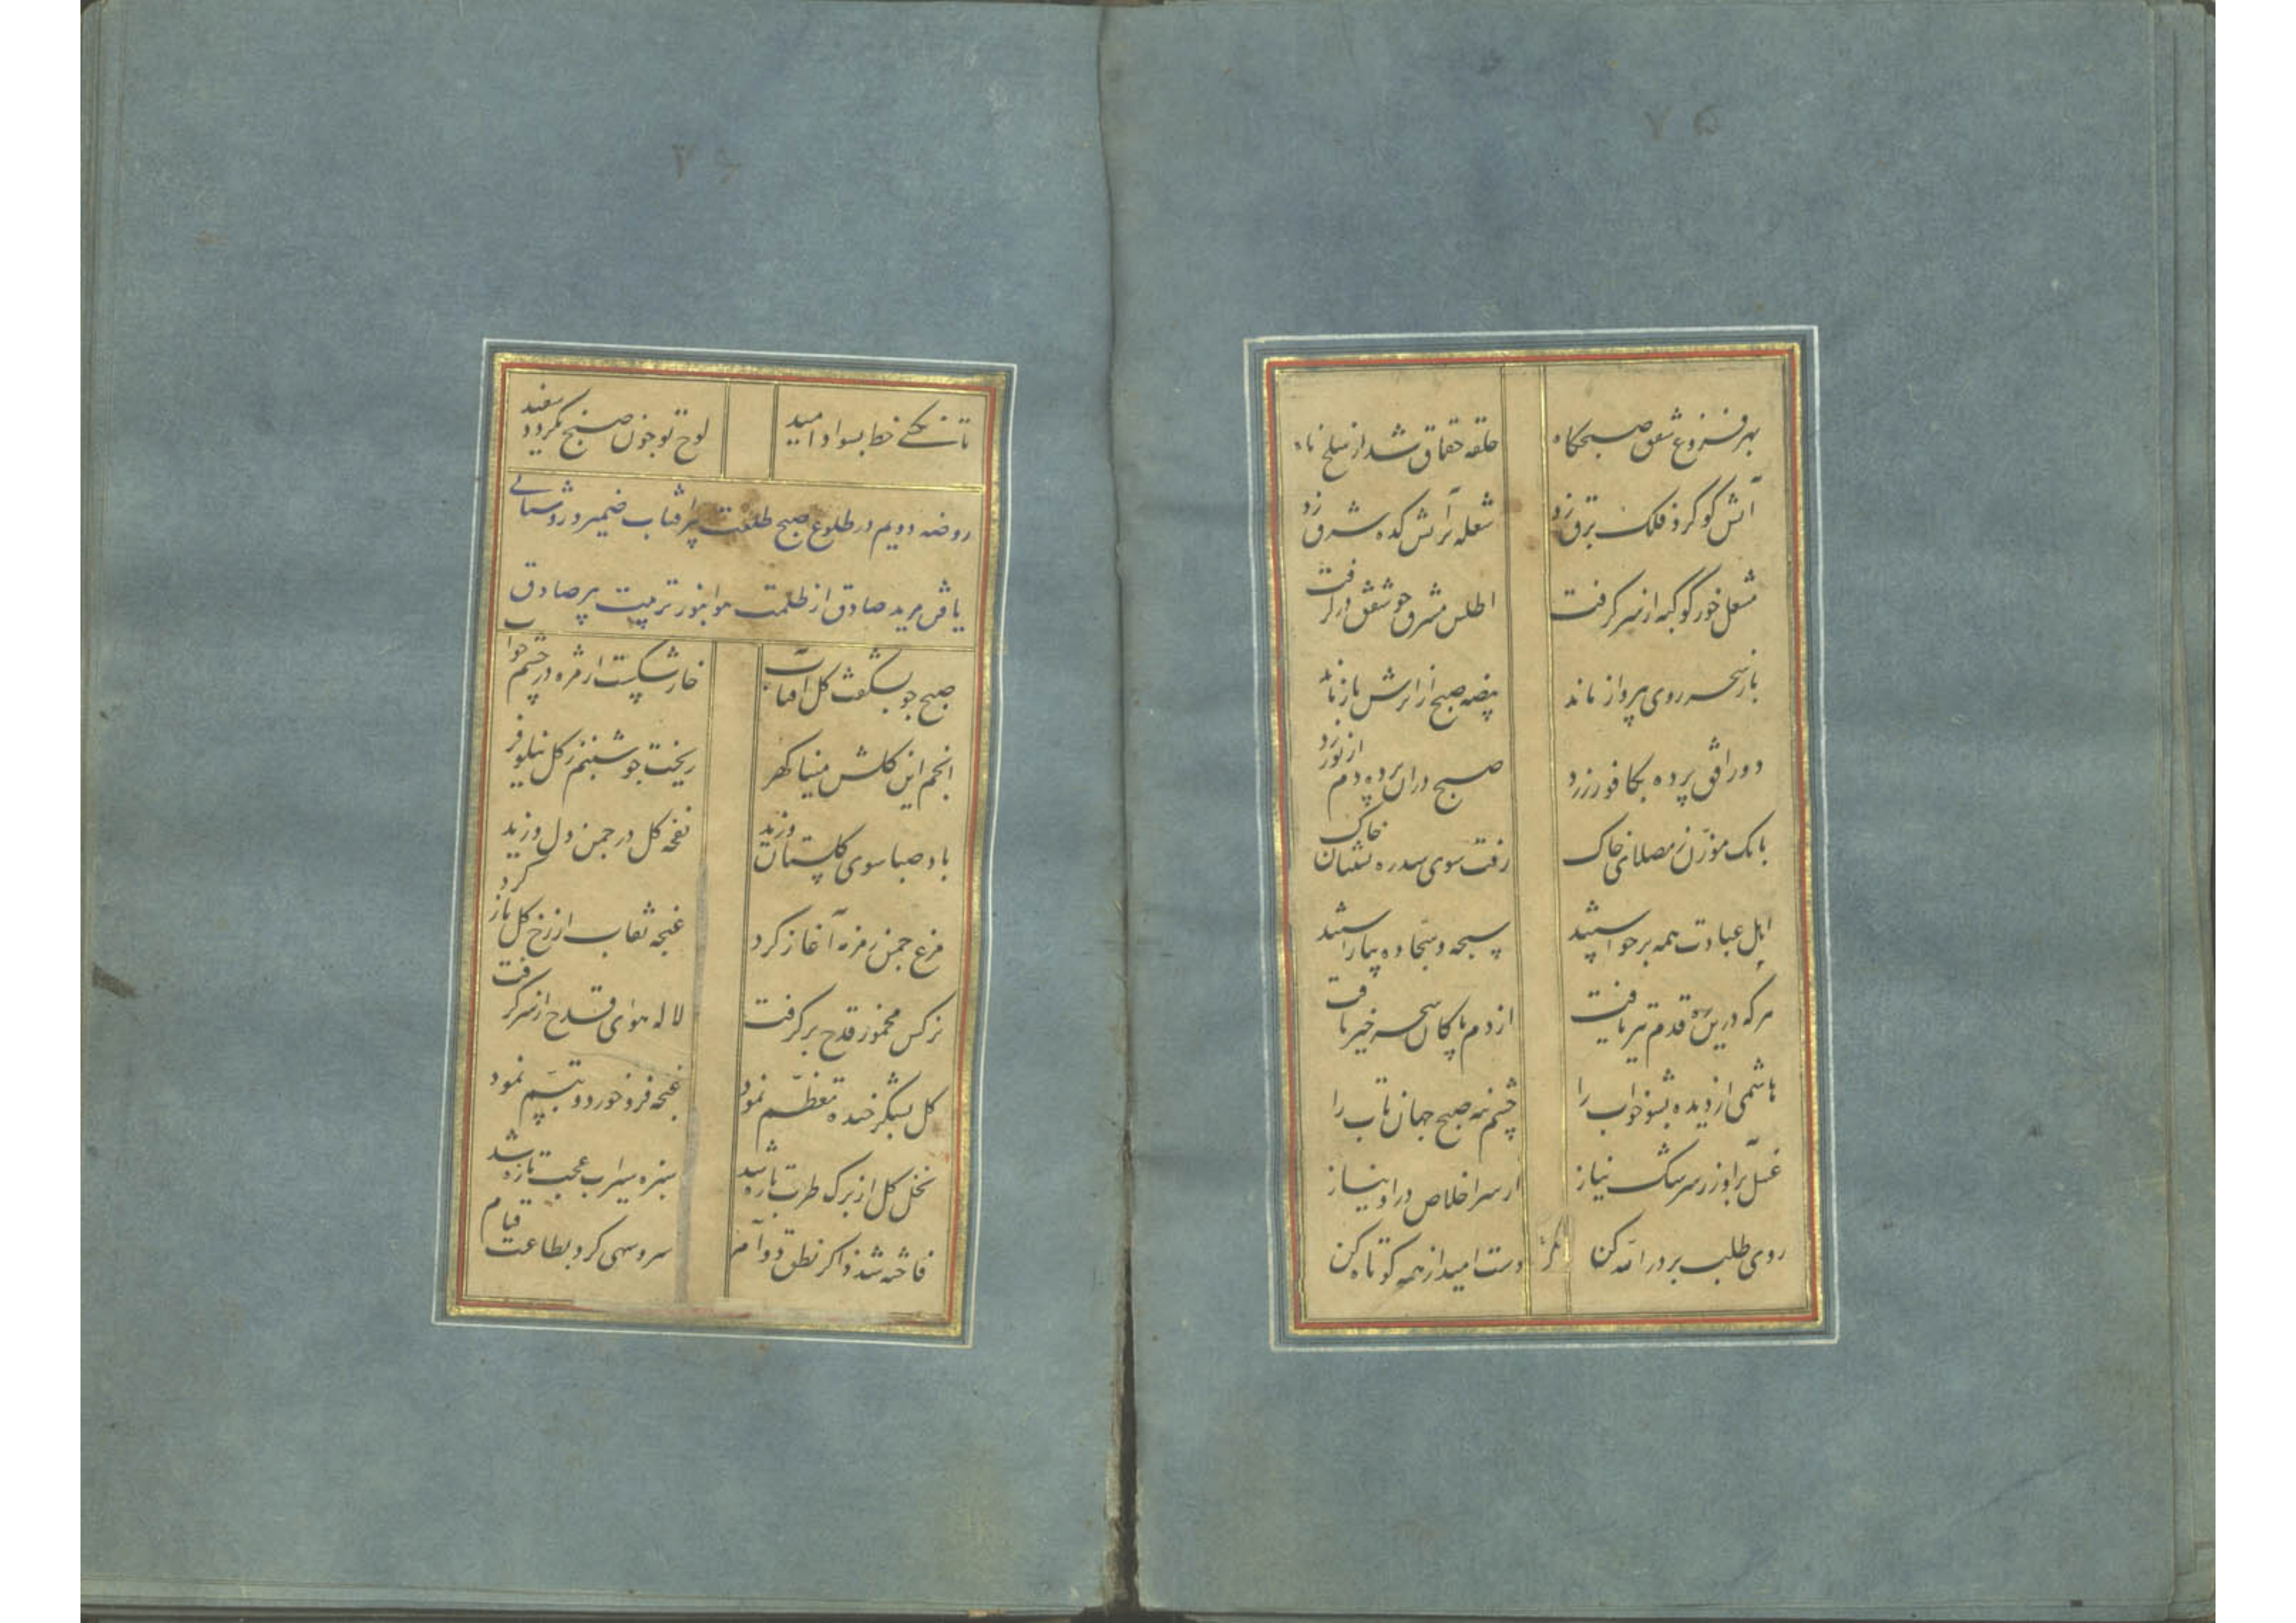 ۷۵
بهر فروغ شفق صبحگاه حلقه چقماق شد از سلخ ماه
آتش گوگرد فلک برق زد شعله بر آتش کده شرق زد
مشعل خور کوکبه از سر گرفت اطلس مشرق چو شفق در گرفت
باز سحر روی به پرواز ماند بیضه صبح از اثرش باز ماند
دور افق پرده بکافور زد صبح دران پرده دم از نور زد
بانک موذن ز مصلای خاک رفت سوی سدره نشینان خاک
اهل عبادت همه برخواستند سبحه و سجاده بیاراستند
هرکه درین ره قدم تیر یافت از دم پاکان سحر خیر یافت
هاشمی از دیده بشو خواب را چشم نه صبح جهان تاب را
غسل برآور ز سرشک نیاز از سر اخلاص درا در نماز
روی طلب بر در الله کن دست امید از همه کوتاه کن
۷۶
تا نکشے خط بسواد امید لوح تو چون صبح نگردد سفید
روضه دویم در طلوع صبح طلعت پیر آفتاب ضمیر و روشنائی
یافتن مرید صادق از ظلمت هوا بنور تربیت پیر صادق
صبح چو بشکفت گل آفتاب خار شکست از مژه در چشم خواب
انجم این گلشن مینا گهر ریخت چو شبنم ز گل نیلوفر
باد صبا سوی گلستان وزید نفحه گل در چمن دل وزید
مرغ چمن زمزمه آغاز کرد غنچه نقاب از رخ گل باز کرد
نرگس مخمور قدح برگرفت لاله هوای قدح از سر گرفت
گل بشکر خنده تعظم نمود غنچه فرو خورد و تبسم نمود
نخل گل از برگ طرب تازه شد سبزه سیراب عجب تازه شد
فاخته شد ذاکر نطق دوام سرو سهی کرد بطاعت قیام